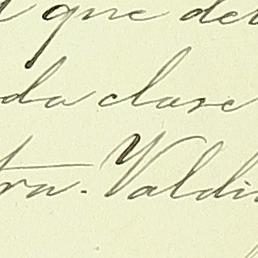 que de
da clase
tra. Valdi